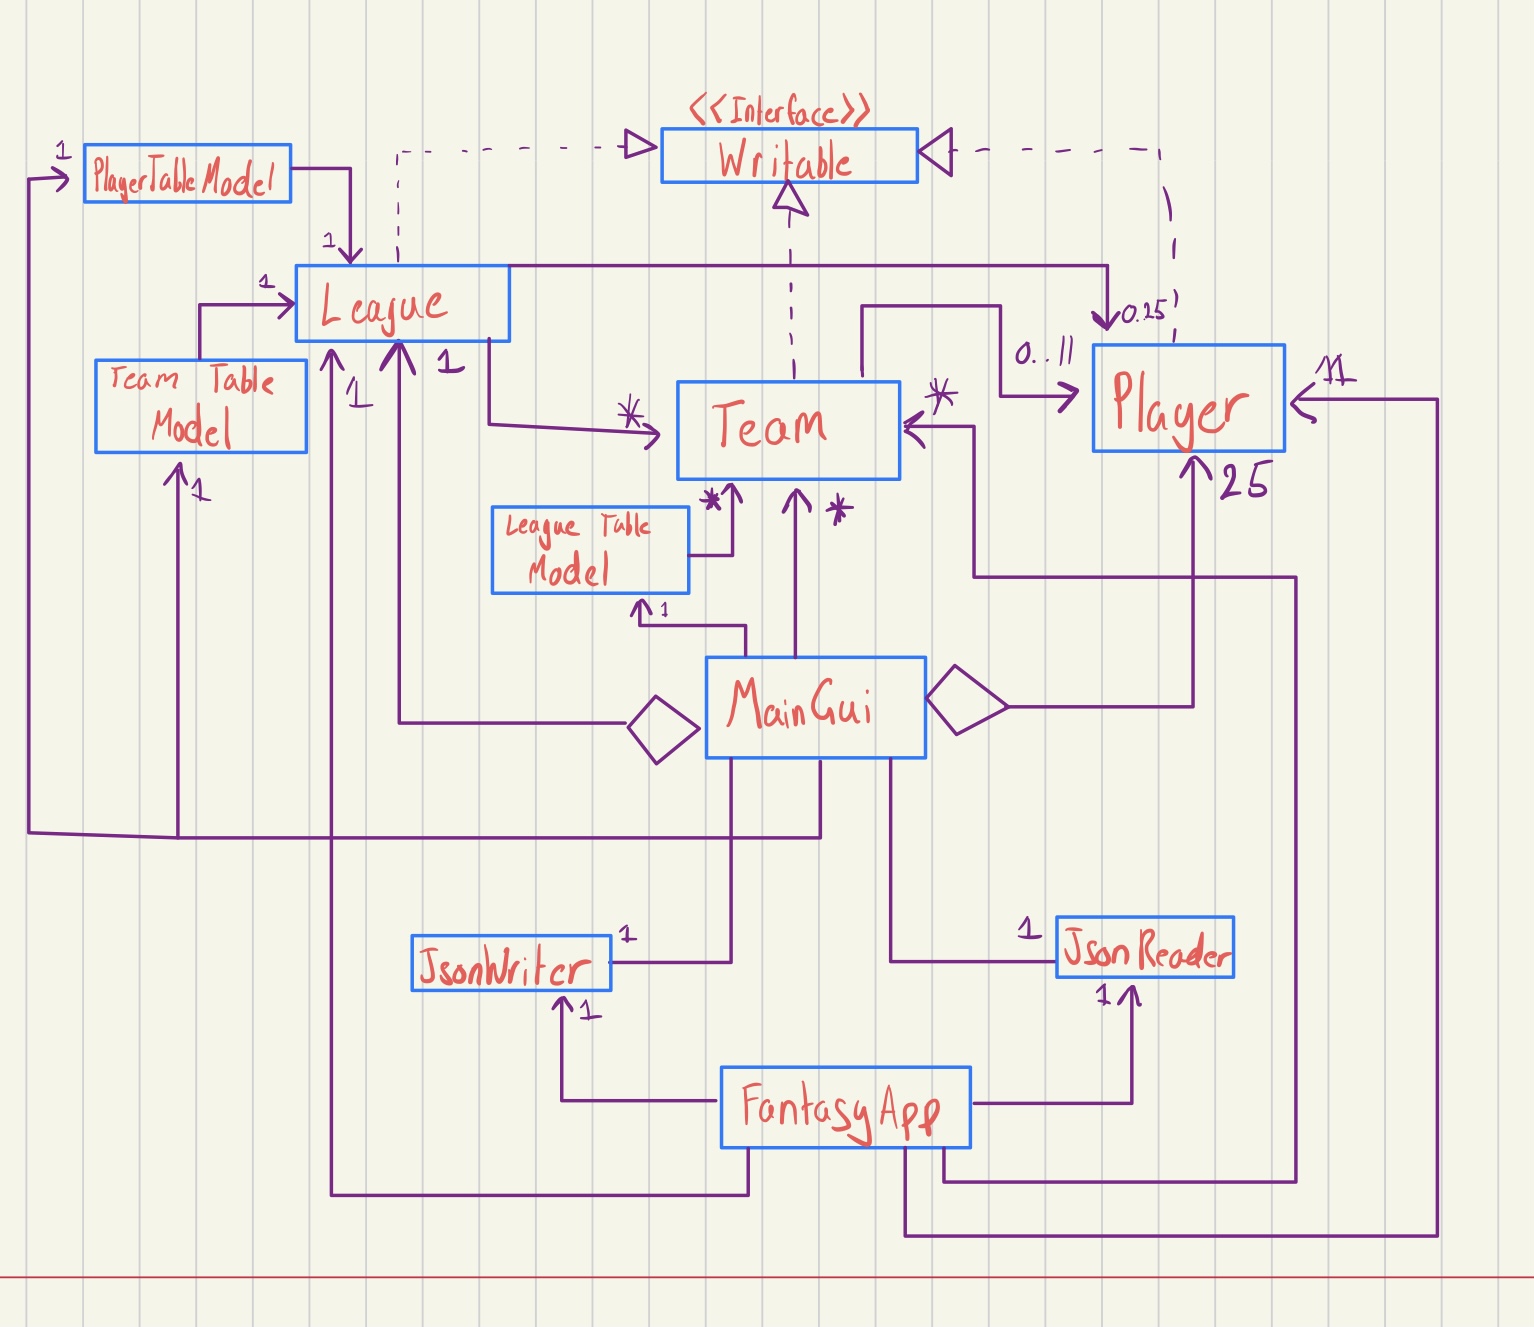 <<Interface>>
Writable
1
PlayerTableModel
1
1
League
0.25
Team Table
Model
1
1
1
*
Team
*
0..11
Player
11
25
*
*
League Table
Model
1
MainGui
JsonWriter
1
1
JsonReader
1
1
FantasyApp